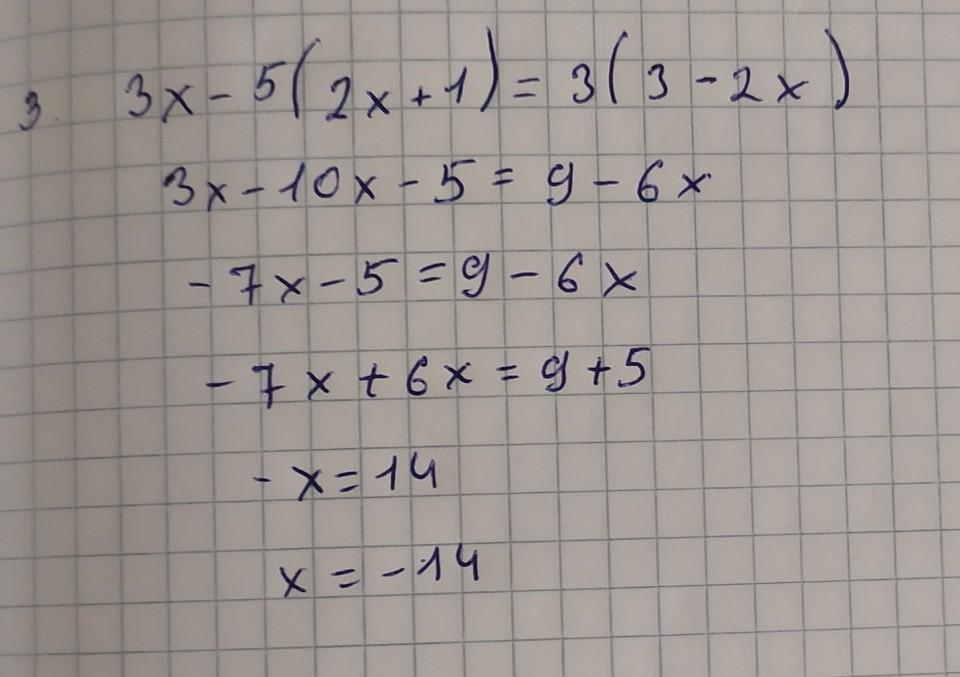 3. 3x - 5(2x + 1) = 3(3 - 2x)
3x - 10x - 5 = 9 - 6x
- 7x - 5 = 9 - 6x
- 7x + 6x = 9 + 5
- x = 14
x = - 14